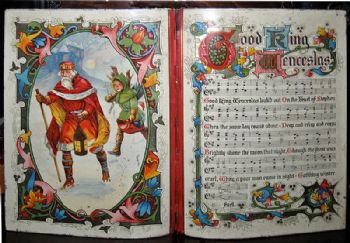 Good King
Wenceslas
Good King Wenceslas look'd out On the Feast of Stephen
When the snow lay round about Deep and crisp and even
Brightly shone the moon that night, Though the frost was
cruel, When a poor man came in sight Gathring winter
fuel.